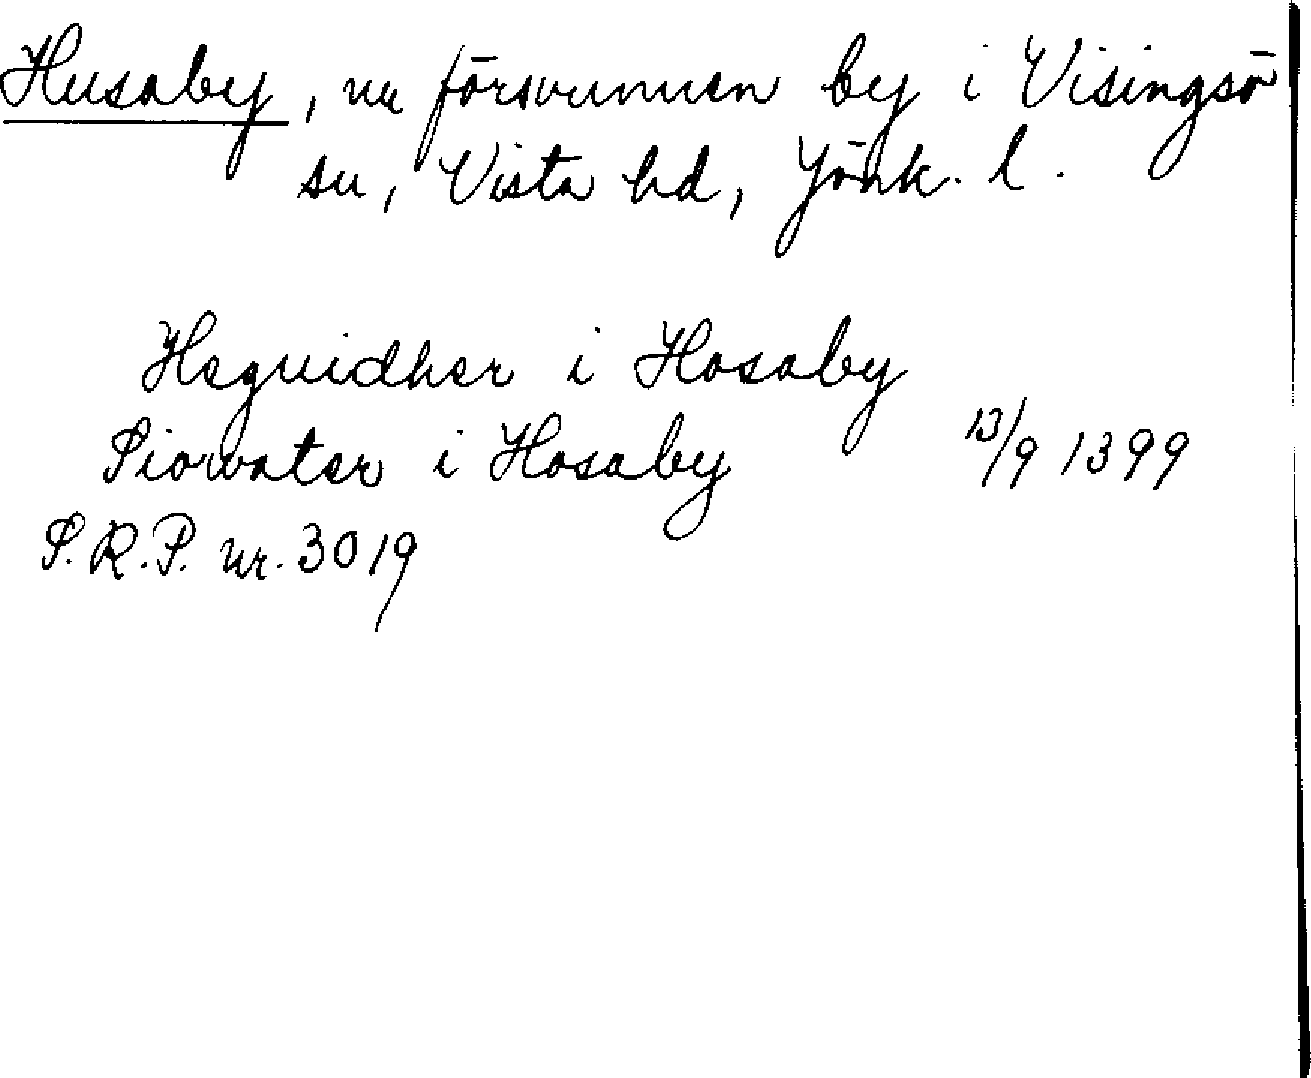 Husaby, nu försvunnen by i Visingsö
sn, Vista hd, Jönk. l.
Hequidher i Hosaby
Siowater i Hosaby 13/9 1399
S.R.P. nr. 3019